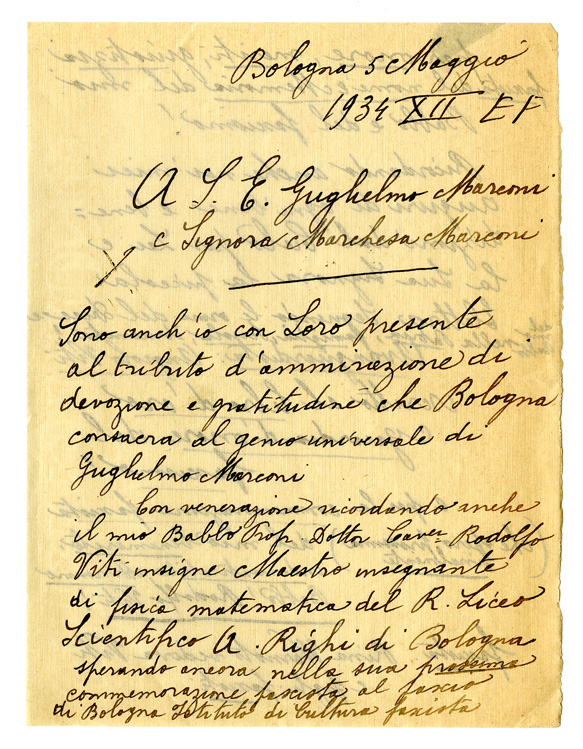 Bologna 5 Maggio
1934 XII EF
A S. E. Guglielmo Marconi
e Signora Marchesa Marconi
Sono anch'io con Loro presente
al tributo d'ammirazione di
devozione e gratitudine che Bologna
consacra al genio universale di
Guglielmo Marconi
Con venerazione ricordando anche
il mio Babbo Prof. Dottor Caver Rodolfo
Viti insigne Maestro insegnante
di fisica matematica del R. Liceo
Scientifico A. Righi di Bologna
sperando ancora nella sua prossima
commemorazione fascista al fascio
di Bologna Istituto di Cultura fascista